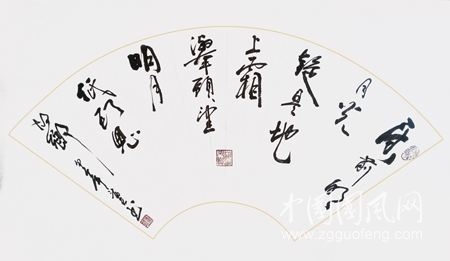 床前明
月光
疑是地
上霜
舉頭望
明月
低頭思
故鄉
中国国风网
www.zgguofeng.com